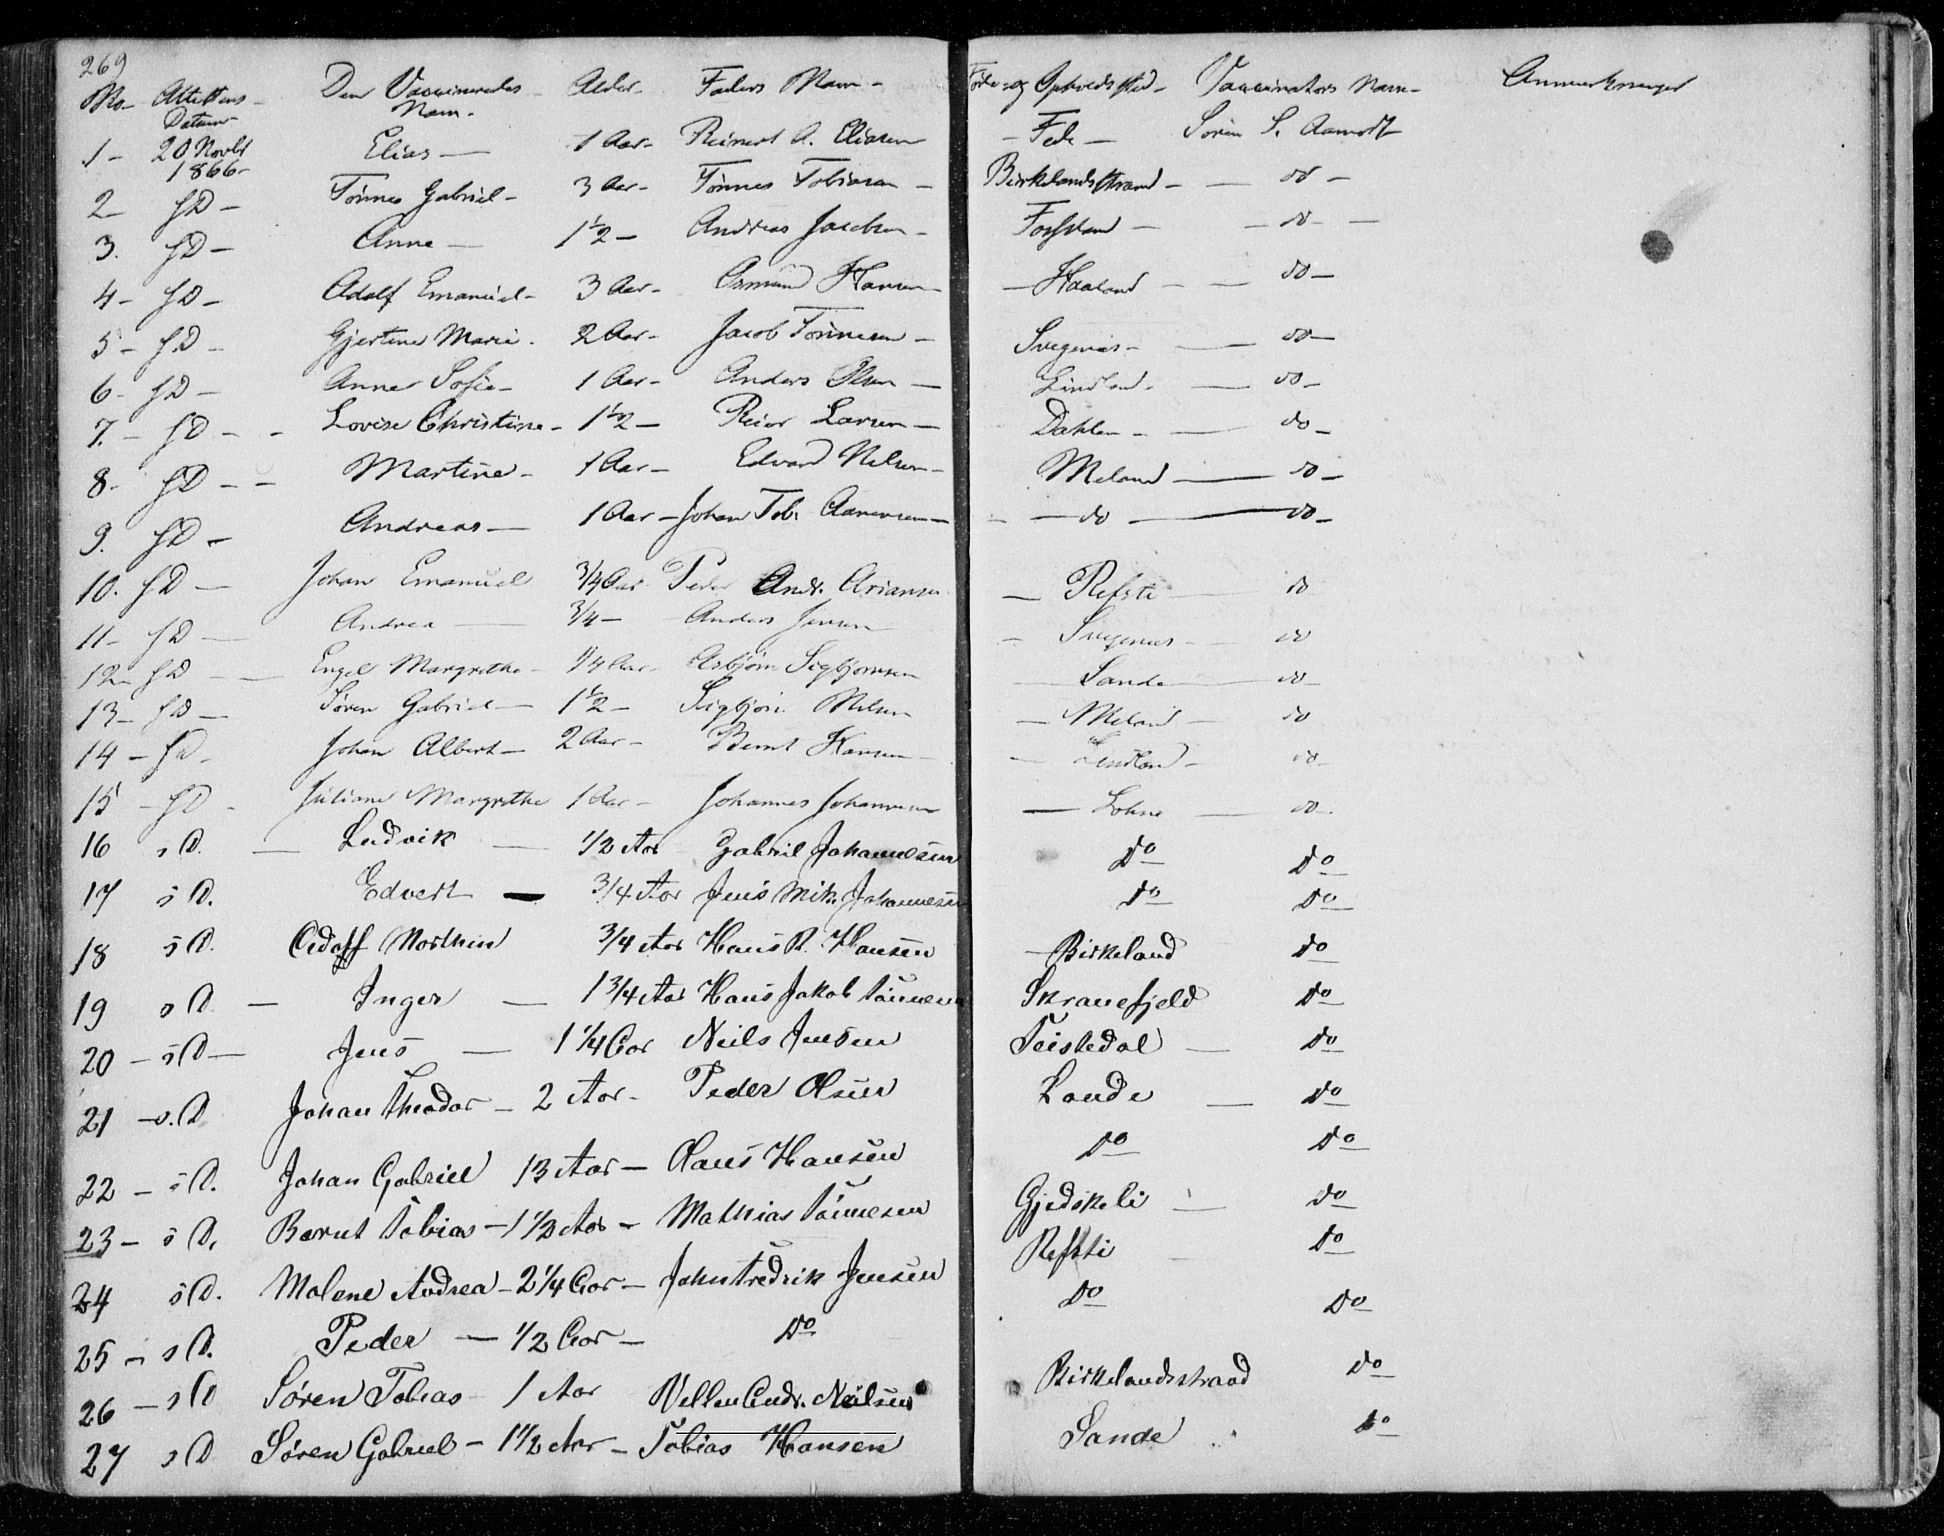 269
No - Attestens Datum - Den Vaccineredes Navn - Alder - Faders Navn - Føde- og Opholdssted - Vaccinators Navn - Anmærkninger
1 - 20 Novbr 1866 - Elias - 1 Aar - Reinert A. Eliasen - Fede - Søren S. Aamodt
2 - s D - Tönnes Gabriel - 3 Aar - Tönnes Tobiasen - Birkelandsstrand - do -
3. s D - Anne - 1 1/2 - Andreas Jacobsen - do -
4 - s D - Adolf Emanuel - 3 Aar - Osmund Hansen - Haaland - do -
5 - s D - Gjertine Marie - 2 Aar - Jacob Tönnesen - Svegenæs - do -
6 - s D - Anne Sofie - 1 Aar - Anders Olsen - Lindland - do -
7. - s D - Lovise Christine - 1 1/2 - Reior Larsen - Dahlen - do -
8 - s D - Martine - 1 Aar - Edvard Nelsen - Meland - do -
9. s D - Andreas - 1 Aar - Johan Tob. Aanensen - do - do -
10. s D - Johan Emanuel 3/4 Aar - Peder Andr. Ariansen - Refsti - do
11 - s D - Andrea - 3/4 - Anders Jensen - Svegenæs - do
12 - s D - Engel Margrethe - 1/4 Aar - Asbjörn Sigbjörnsen - Sande - do
13 - s D - Søren Gabriel - 1 1/2 - Sigbjörn Nelsen - Meland - do
14 - s D - Johan Albert - 2 Aar - Bernt Hansen - Lindland - do -
15 - s D - Juliane Margrethe 1 Aar - Johannes Johannesen - Lohne - do -
16 s D. - Ludvik - 1/2 Aar Gabriel Johannesen Do Do
17 s D. Edvert - 3/4 Aar Jens Mik. Johannesen Do Do
18 s D. Adolf Morthin 3/4 Aar Hans R. Hansen - Birkeland Do
19 s D - Inger - 1 3/4 Aar Hans Jakob Tönnesen Skranefjeld Do
20 - s D - Jens - 1 1/4 Aar Neils Jensen Teistedal - Do
21 - s. D Johan Theodor - 2 Aar - Peder Olsen Lande - Do
22 - s D. Johan Gabriel 13 Aar - Claus Hansen Do Do
23 - s D. Bernt Tobias - 1 1/2 Aar - Mathias Tönnesen Gjedskeli - Do
24 s D. Malene Andrea - 2 1/4 Aar - John Fredrik Jensen Refsti Do
25 - s D. Peder - 1/2 Aar - Do Do Do
26 - s D Søren Tobias 1 Aar Andr. Neilsen Birkelandsstraad Do
27 s D Søren Gabriel - 1 1/2 Aar - Tobias Hansen Sande Do